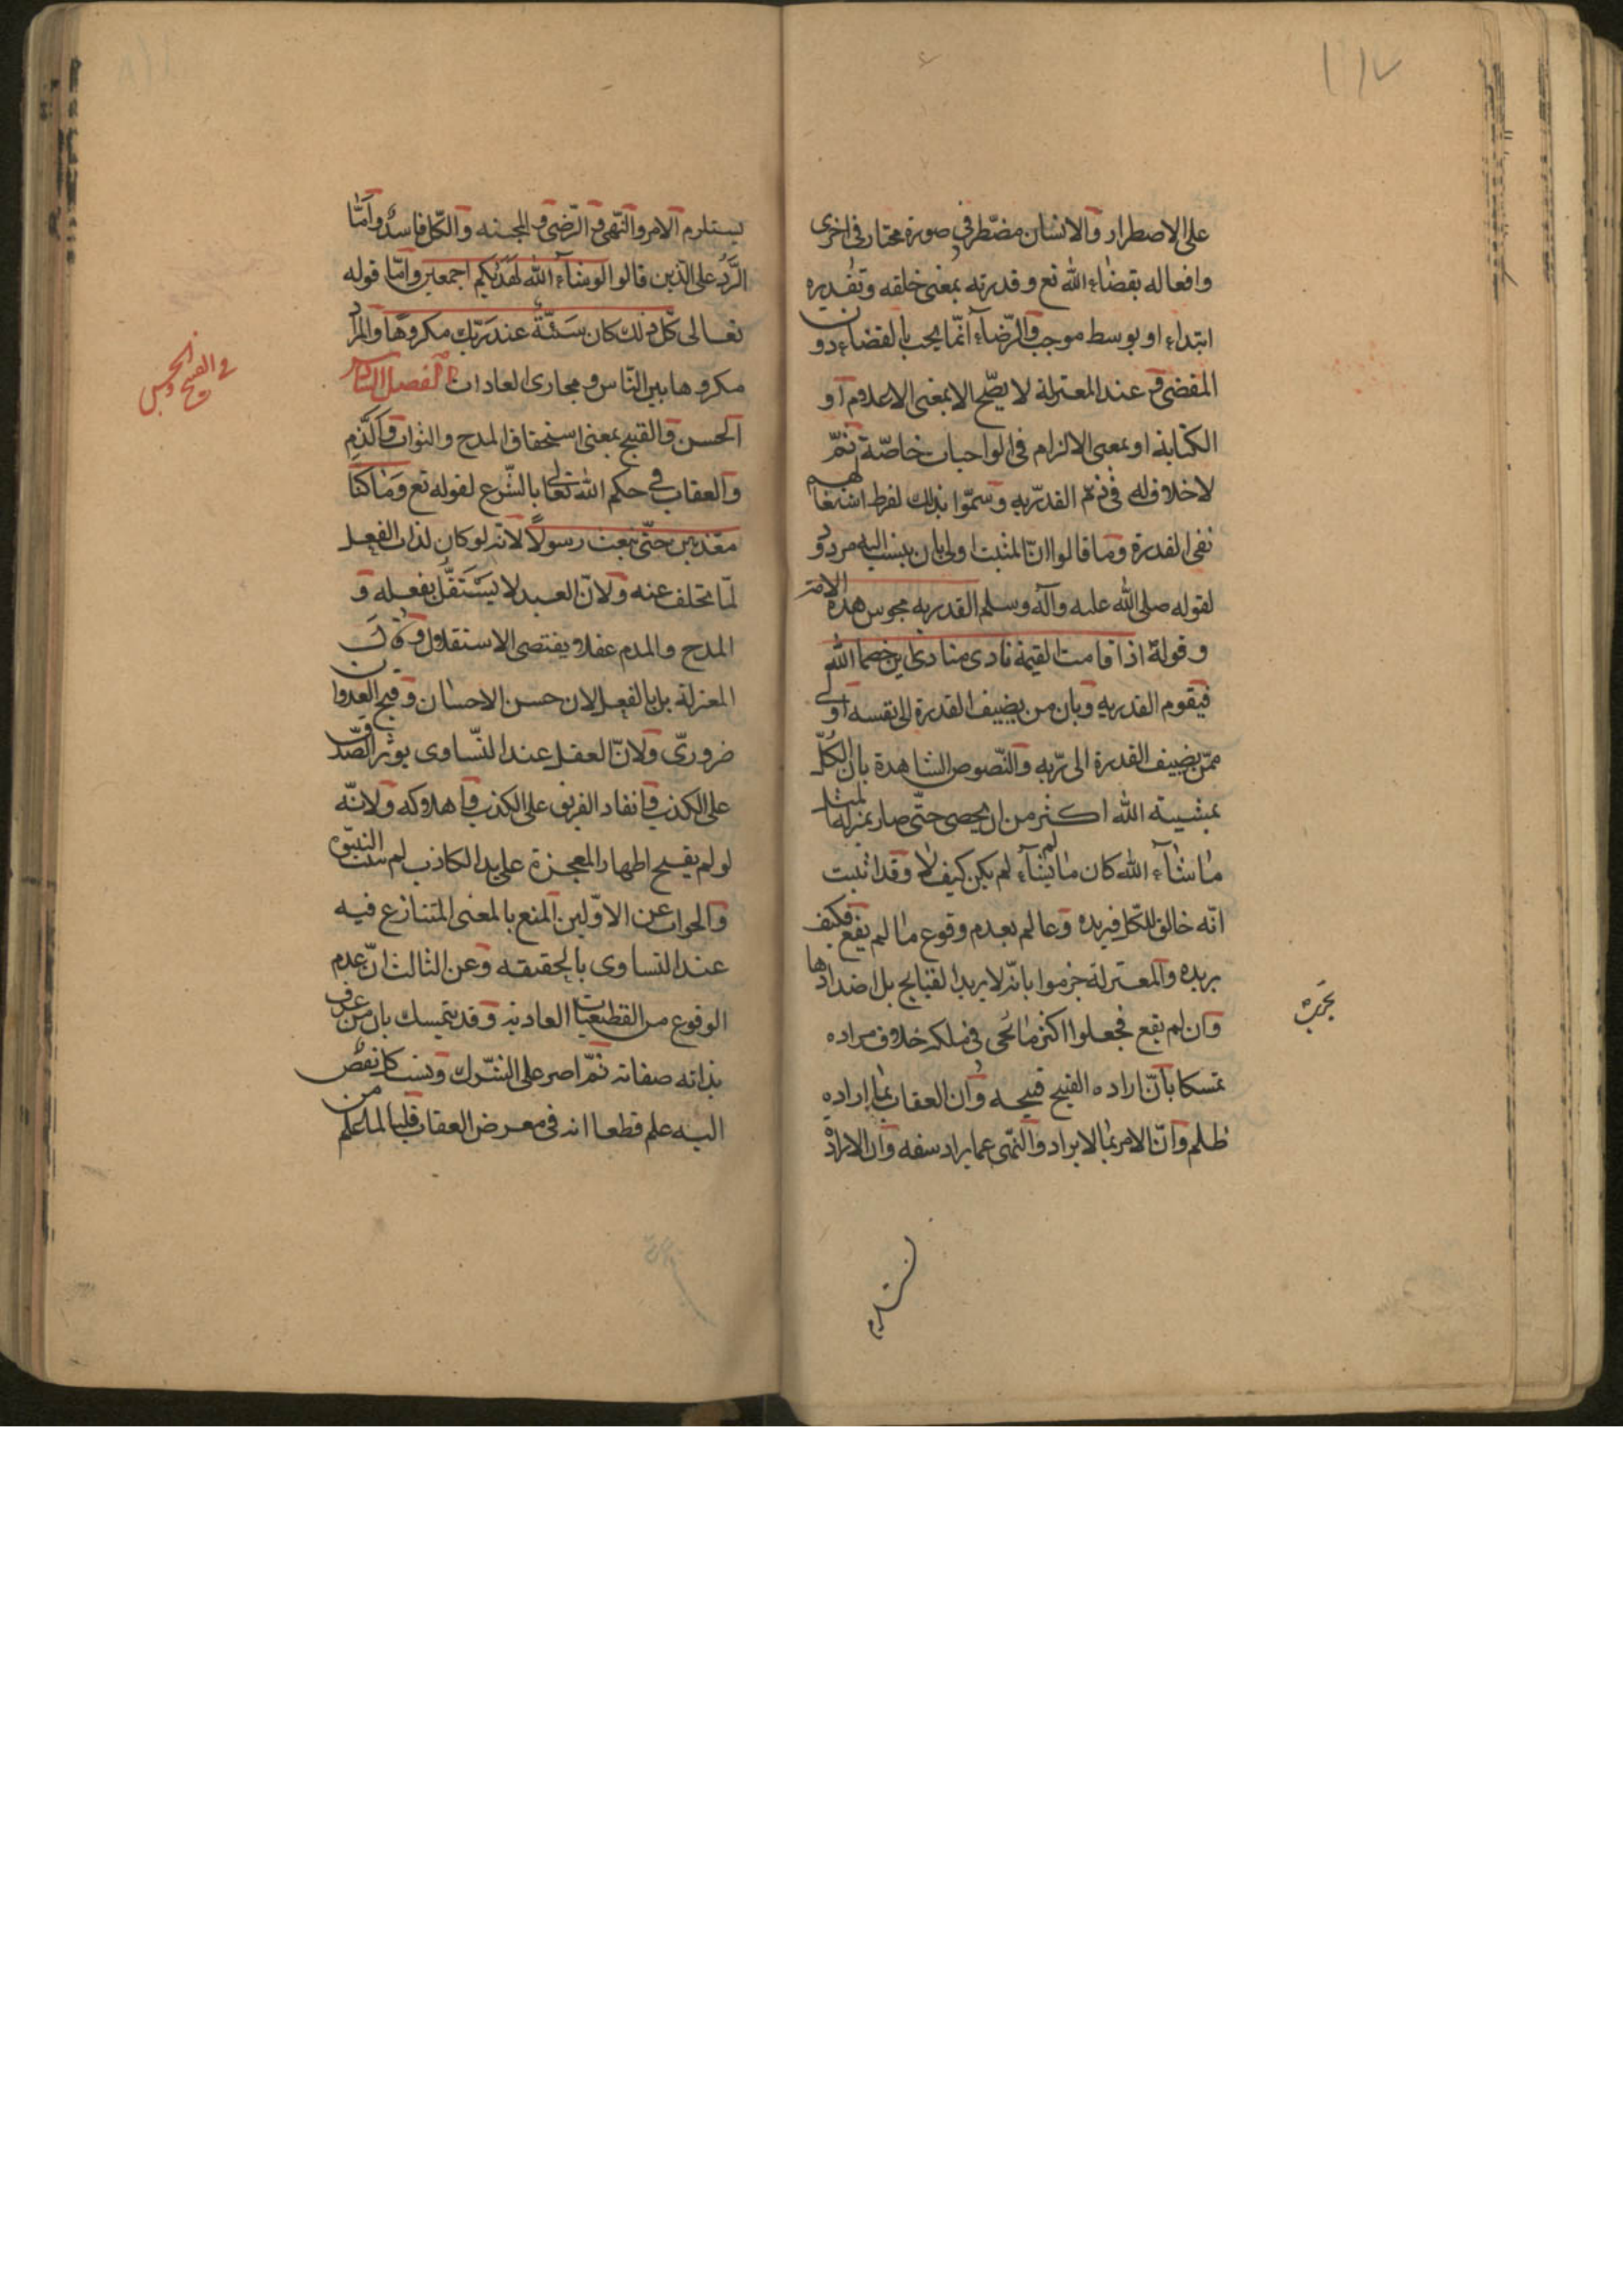 ١١٧
على الاضطرار والانسان مضطر في صورة مختار في اخرى
وافعاله بقضاء الله تع وقدرته بمعنى خلقه وتقديره
ابتداء او بوسط موجب والرضاء انما يجب بالقضاء دون
المقضى و عند المعتزلة لا يصح الا بمعنى الاعلام او
الكتابة او بمعنى الالزام في الواجبات خاصة ثم
لا خلاف في ذم القدرية وسموا بذلك لفرط اشتغالهم
نفى القدرة وما قالوا ان المثبت اولى بان ينسب اليه مردود
لقوله صلى الله عليه وآله وسلم القدريه مجوس هذه الامة
وقوله اذا قامت القيمة نادى مناد اين خصما الله
فيقوم القدريه وبان من يضيف القدرة الى نفسه اولى
ممن يضيف القدرة الى ربه والنصوص الشاهدة بان الكل
بمشيته الله اكثر من ان يحصى حتى صار بمنزلة المثل
ما شاء الله كان ما لم يشاء لم يكن كيف لا وقد اثبت
انه خالق للكل فيريده وعالم بعدم وقوع ما لم يقع فكيف
يريده والمعتزلة جزموا بانه لا يريد القبايح بل اضدادها
وان لم يقع فجعلوا اكثر ما يجرى في ملكه خلاف مراده
تمسكا بان اراده القبيح قبيحه وان العقاب بما اراده
ظلم وان الامر بما لا يراد والنهى عما يراد سفه وان الارادة
يستلزم الامر والنهى و الرضى و المحبه والكل فاسد واما
الرد على الذين قالوا لو شاء الله لهديكم اجمعين واما قوله
تعالى كل ذلك كان سيئة عند ربك مكروها والمراد
مكروها بين الناس و مجارى العادات الفصل السادس
الحسن والقبيح بمعنى استحقاق المدح والثواب والذم
والعقاب في حكم الله تعالى بالشرع لقوله تع وما كنا
معذبين حتى نبعث رسولا لانه لو كان لذات الفعل
لما تخلف عنه ولان العبد لا يستقل بفعله و
المدح والذم عقلا يقتضى الاستقلال و
المعتزلة بل بالفعل لان حسن الاحسان وقبح العدوان
ضرورى ولان العقل عند التساوى يوثر الصدق
على الكذب وانقاذ الغريق على الكذب واهلاكه ولانه
لو لم يقبح اظهار المعجزة على يد الكاذب لم يثبت النبوة
والجواب عن الاولين المنع بالمعنى المتنازع فيه
عند التساوى بالحقيقه وعن الثالث ان عدم
الوقوع من القطعيات العادية وقد يتمسك بان من عرف
بذاته صفاته ثم اصر على الشرك ونسب كل نقص
اليه علم قطعا انه في معرض العقاب قلنا لما علم من
في القبح والحسن